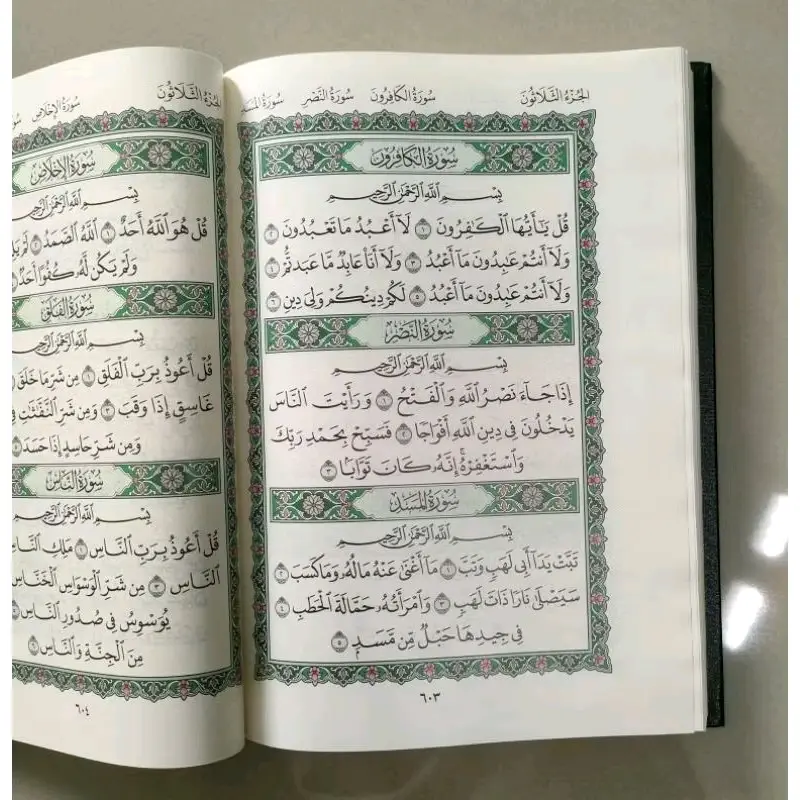 الجُزْءُ الثَّلَاثُونَ سُورَةُ الكَافِرُونَ سُورَةُ النَّصْرِ سُورَةُ المَسَدِ
سُورَةُ الكَافِرُونَ
بِسْمِ اللَّهِ الرَّحْمَٰنِ الرَّحِيمِ
قُلْ يَٰٓأَيُّهَا الْكَٰفِرُونَ ١ لَآ أَعْبُدُ مَا تَعْبُدُونَ ٢
وَلَآ أَنتُمْ عَٰبِدُونَ مَآ أَعْبُدُ ٣ وَلَآ أَنَا۠ عَابِدٌ مَّا عَبَدتُّمْ ٤
وَلَآ أَنتُمْ عَٰبِدُونَ مَآ أَعْبُدُ ٥ لَكُمْ دِينُكُمْ وَلِيَ دِينِ ٦
سُورَةُ النَّصْرِ
بِسْمِ اللَّهِ الرَّحْمَٰنِ الرَّحِيمِ
إِذَا جَآءَ نَصْرُ اللَّهِ وَالْفَتْحُ ١ وَرَأَيْتَ النَّاسَ
يَدْخُلُونَ فِي دِينِ اللَّهِ أَفْوَاجًا ٢ فَسَبِّحْ بِحَمْدِ رَبِّكَ
وَاسْتَغْفِرْهُ ۚ إِنَّهُ كَانَ تَوَّابًا ٣
سُورَةُ المَسَدِ
بِسْمِ اللَّهِ الرَّحْمَٰنِ الرَّحِيمِ
تَبَّتْ يَدَآ أَبِي لَهَبٍ وَتَبَّ ١ مَآ أَغْنَىٰ عَنْهُ مَالُهُ وَمَا كَسَبَ ٢
سَيَصْلَىٰ نَارًا ذَاتَ لَهَبٍ ٣ وَامْرَأَتُهُ حَمَّالَةَ الْحَطَبِ ٤
فِي جِيدِهَا حَبْلٌ مِّن مَّسَدٍ ٥
٦٠٣
الجُزْءُ الثَّلَاثُونَ سُورَةُ الإِخْلَاصِ
سُورَةُ الإِخْلَاصِ
بِسْمِ اللَّهِ الرَّحْمَٰنِ الرَّحِيمِ
قُلْ هُوَ اللَّهُ أَحَدٌ ١ اللَّهُ الصَّمَدُ ٢ لَمْ
وَلَمْ يَكُن لَّهُ كُفُوًا أَحَدٌ
سُورَةُ الفَلَقِ
بِسْمِ اللَّهِ الرَّحْمَٰنِ الرَّحِيمِ
قُلْ أَعُوذُ بِرَبِّ الْفَلَقِ ١ مِن شَرِّ مَا خَلَقَ
غَاسِقٍ إِذَا وَقَبَ ٣ وَمِن شَرِّ النَّفَّٰثَٰتِ فِي
وَمِن شَرِّ حَاسِدٍ إِذَا حَسَدَ ٥
سُورَةُ النَّاسِ
بِسْمِ اللَّهِ الرَّحْمَٰنِ الرَّحِيمِ
قُلْ أَعُوذُ بِرَبِّ النَّاسِ ١ مَلِكِ النَّاسِ
النَّاسِ ٣ مِن شَرِّ الْوَسْوَاسِ الْخَنَّاسِ
يُوَسْوِسُ فِي صُدُورِ النَّاسِ
مِنَ الْجِنَّةِ وَالنَّاسِ ٦
٦٠٤